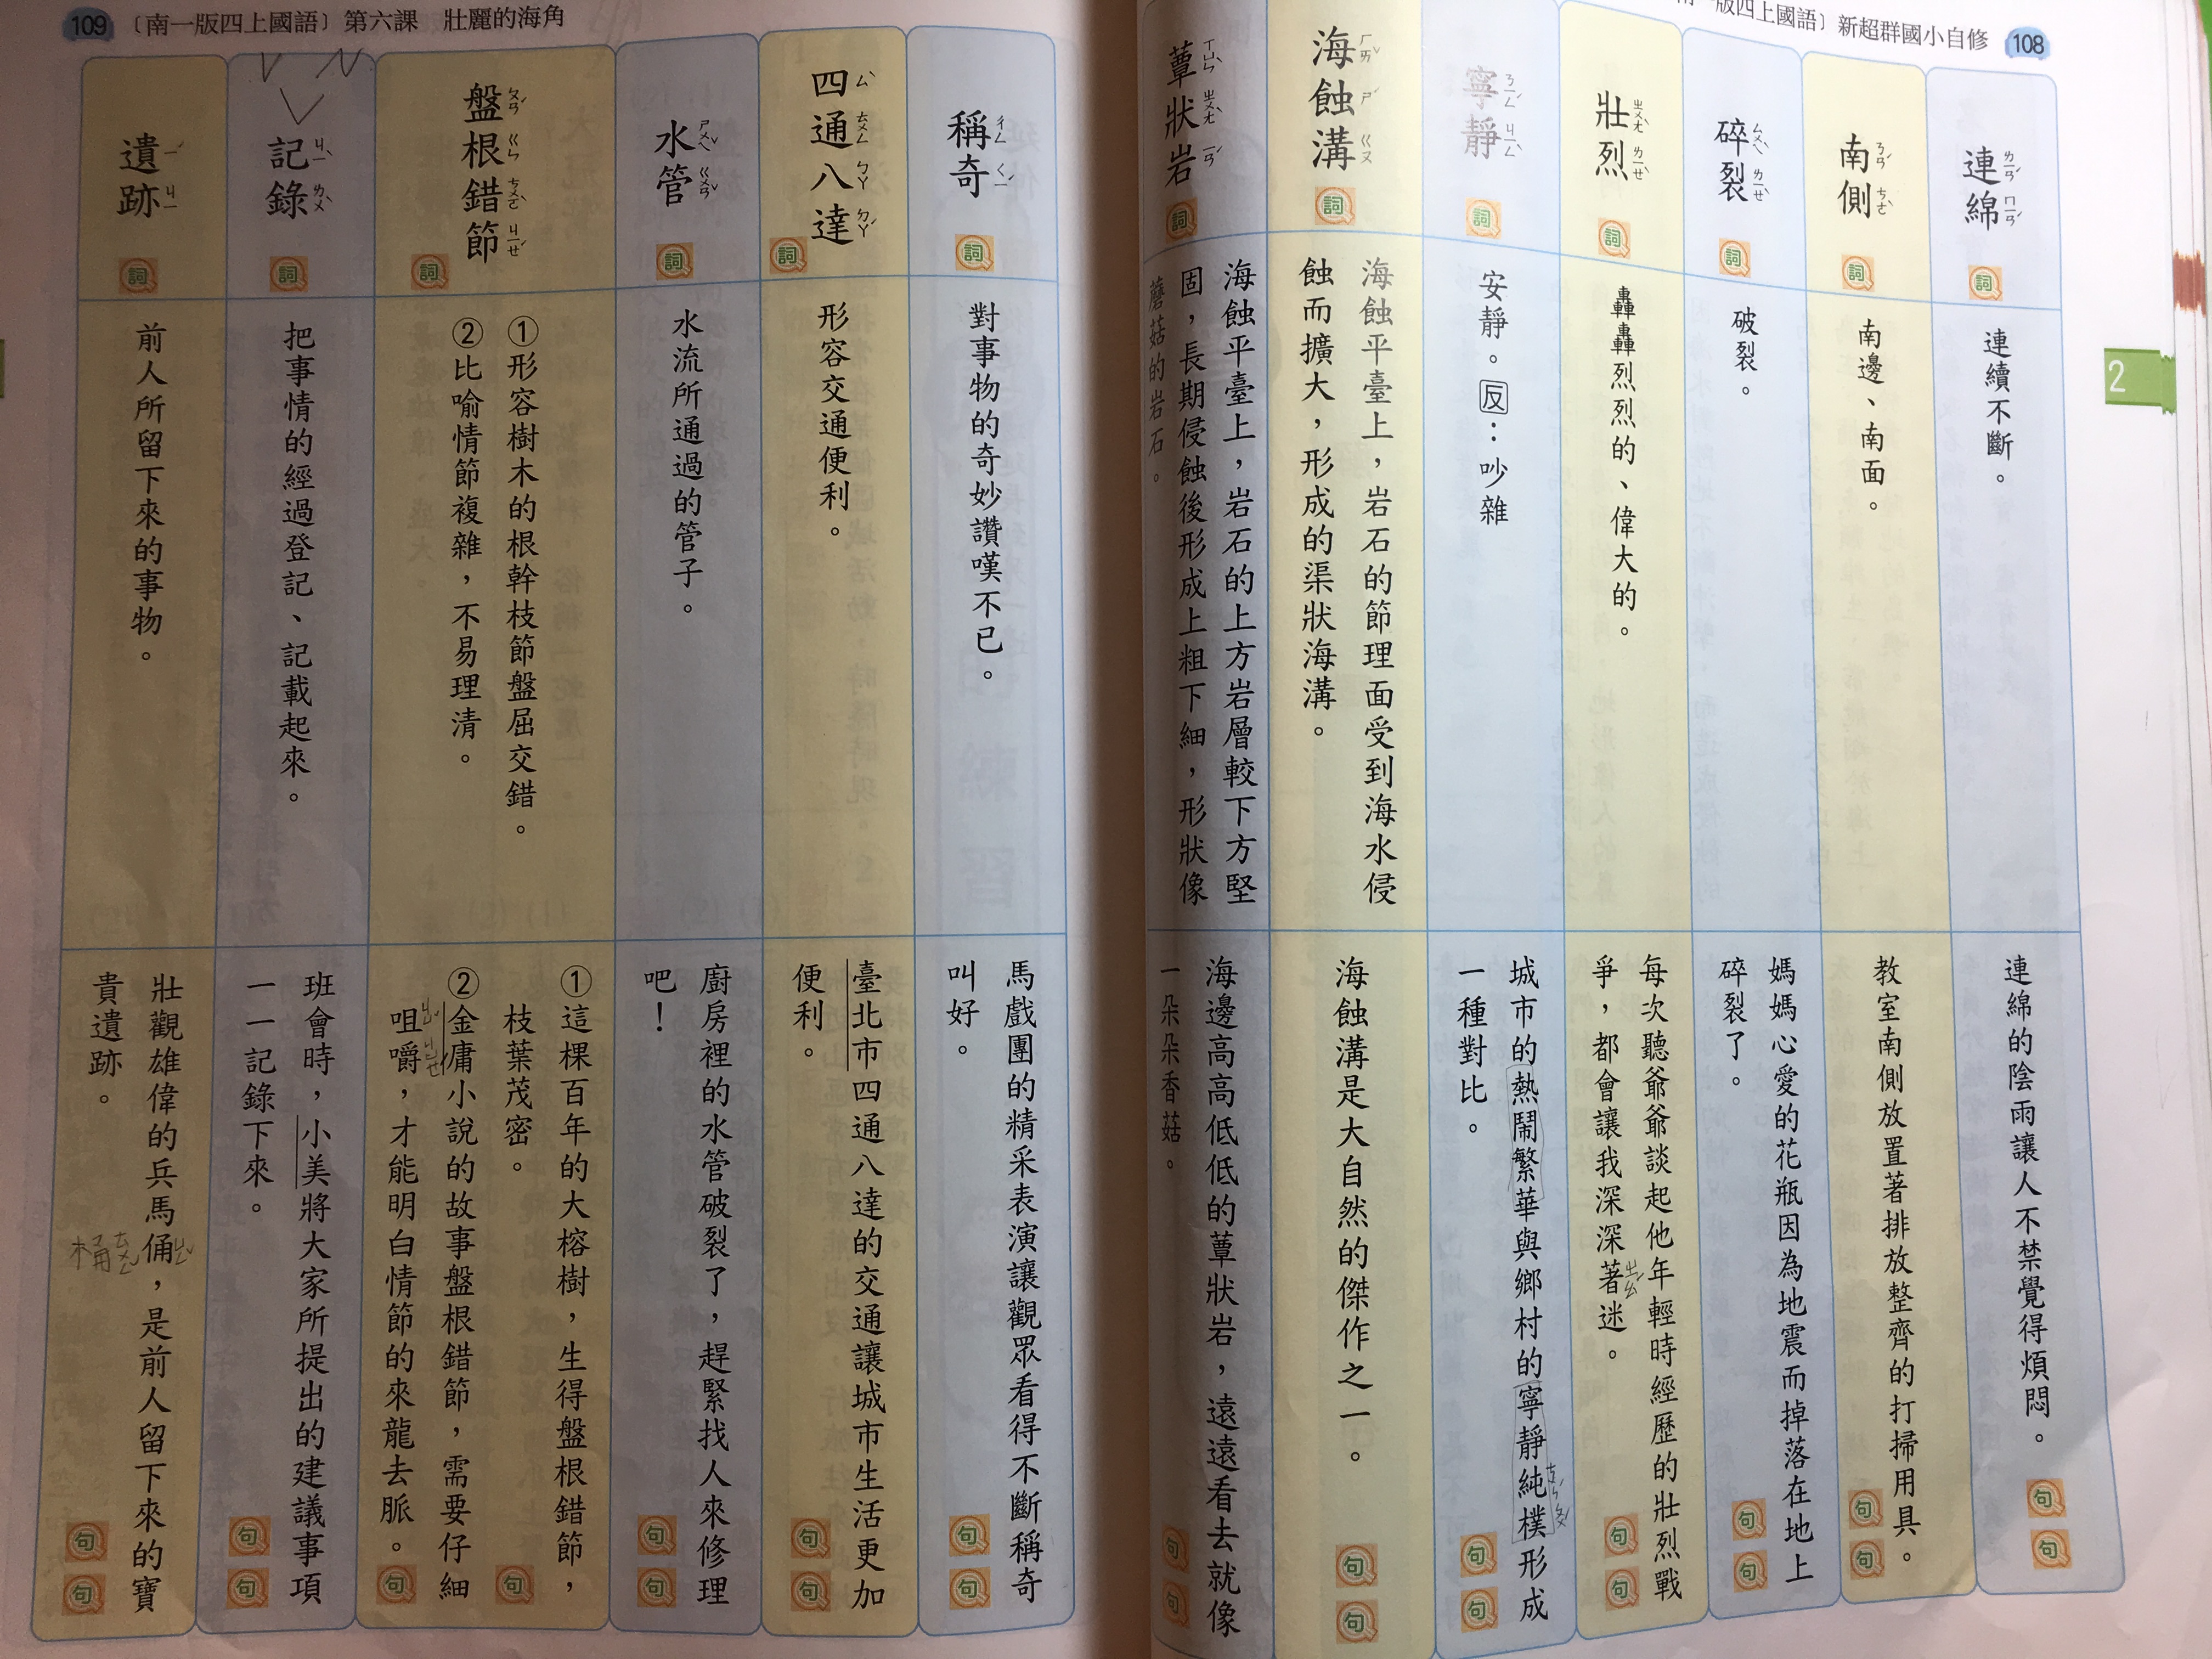 南一版四上國語〕新超群國小自修 108
2
連綿
ㄌㄧㄢˊ ㄇㄧㄢˊ
詞
連續不斷。
連綿的陰雨讓人不禁覺得煩悶。
句 句
南側
ㄋㄢˊ ㄘㄜˋ
詞
南邊、南面。
教室南側放置著排放整齊的打掃用具。
句 句
碎裂
ㄙㄨㄟˋ ㄌㄧㄝˋ
詞
破裂。
媽媽心愛的花瓶因為地震而掉落在地上
碎裂了。
句 句
壯烈
ㄓㄨㄤˋ ㄌㄧㄝˋ
詞
轟轟烈烈的、偉大的。
每次聽爺爺談起他年輕時經歷的壯烈戰
爭,都會讓我深深著迷。
ㄓㄠ
句 句
寧靜
ㄋㄧㄥˊ ㄐㄧㄥˋ
詞
安靜。反:吵雜
城市的熱鬧繁華與鄉村的寧靜純樸形成
一種對比。
句 句
海蝕溝
ㄏㄞˇ ㄕˊ ㄍㄡ
詞
海蝕平臺上,岩石的節理面受到海水侵
蝕而擴大,形成的渠狀海溝。
海蝕溝是大自然的傑作之一。
句 句
蕈狀岩
ㄒㄩㄣˋ ㄓㄨㄤˋ ㄧㄢˊ
詞
海蝕平臺上,岩石的上方岩層較下方堅
固,長期侵蝕後形成上粗下細,形狀像
蘑菇的岩石。
海邊高高低低的蕈狀岩,遠遠看去就像
一朵朵香菇。
句 句
109 〔南一版四上國語〕第六課 壯麗的海角
稱奇
ㄔㄥ ㄑㄧˊ
詞
對事物的奇妙讚嘆不已。
馬戲團的精采表演讓觀眾看得不斷稱奇
叫好。
句 句
四通八達
ㄙˋ ㄊㄨㄥ ㄅㄚ ㄉㄚˊ
詞
形容交通便利。
臺北市四通八達的交通讓城市生活更加
便利。
句 句
水管
ㄕㄨㄟˇ ㄍㄨㄢˇ
詞
水流所通過的管子。
廚房裡的水管破裂了,趕緊找人來修理
吧!
句 句
盤根錯節
ㄆㄢˊ ㄍㄣ ㄘㄨㄛˋ ㄐㄧㄝˊ
詞
①形容樹木的根幹枝節盤屈交錯。
②比喻情節複雜,不易理清。
①這棵百年的大榕樹,生得盤根錯節,
枝葉茂密。
句
②金庸小說的故事盤根錯節,需要仔細
咀嚼,才能明白情節的來龍去脈。
句
記錄
ㄐㄧˋ ㄌㄨˋ
詞
把事情的經過登記、記載起來。
班會時,小美將大家所提出的建議事項
一一記錄下來。
句 句
遺跡
ㄧˊ ㄐㄧ
詞
前人所留下來的事物。
壯觀雄偉的兵馬俑,是前人留下來的寶
貴遺跡。
桶 ㄊㄨㄥˇ
句 句